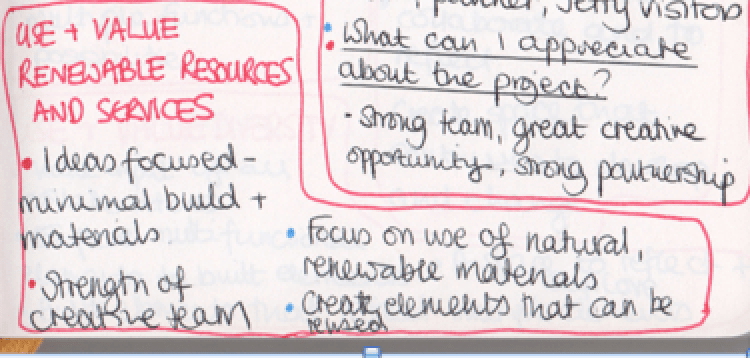 USE + VALUE
RENEWABLE RESOURCES
AND SERVICES
• Ideas focused -
minimal build +
materials.
• Strength of
creative team
• Focus on use of natural,
renewable materials
• Create elements that can be
reused
What can I appreciate
about the project?
- Strong team, great creative
opportunity, strong partnership